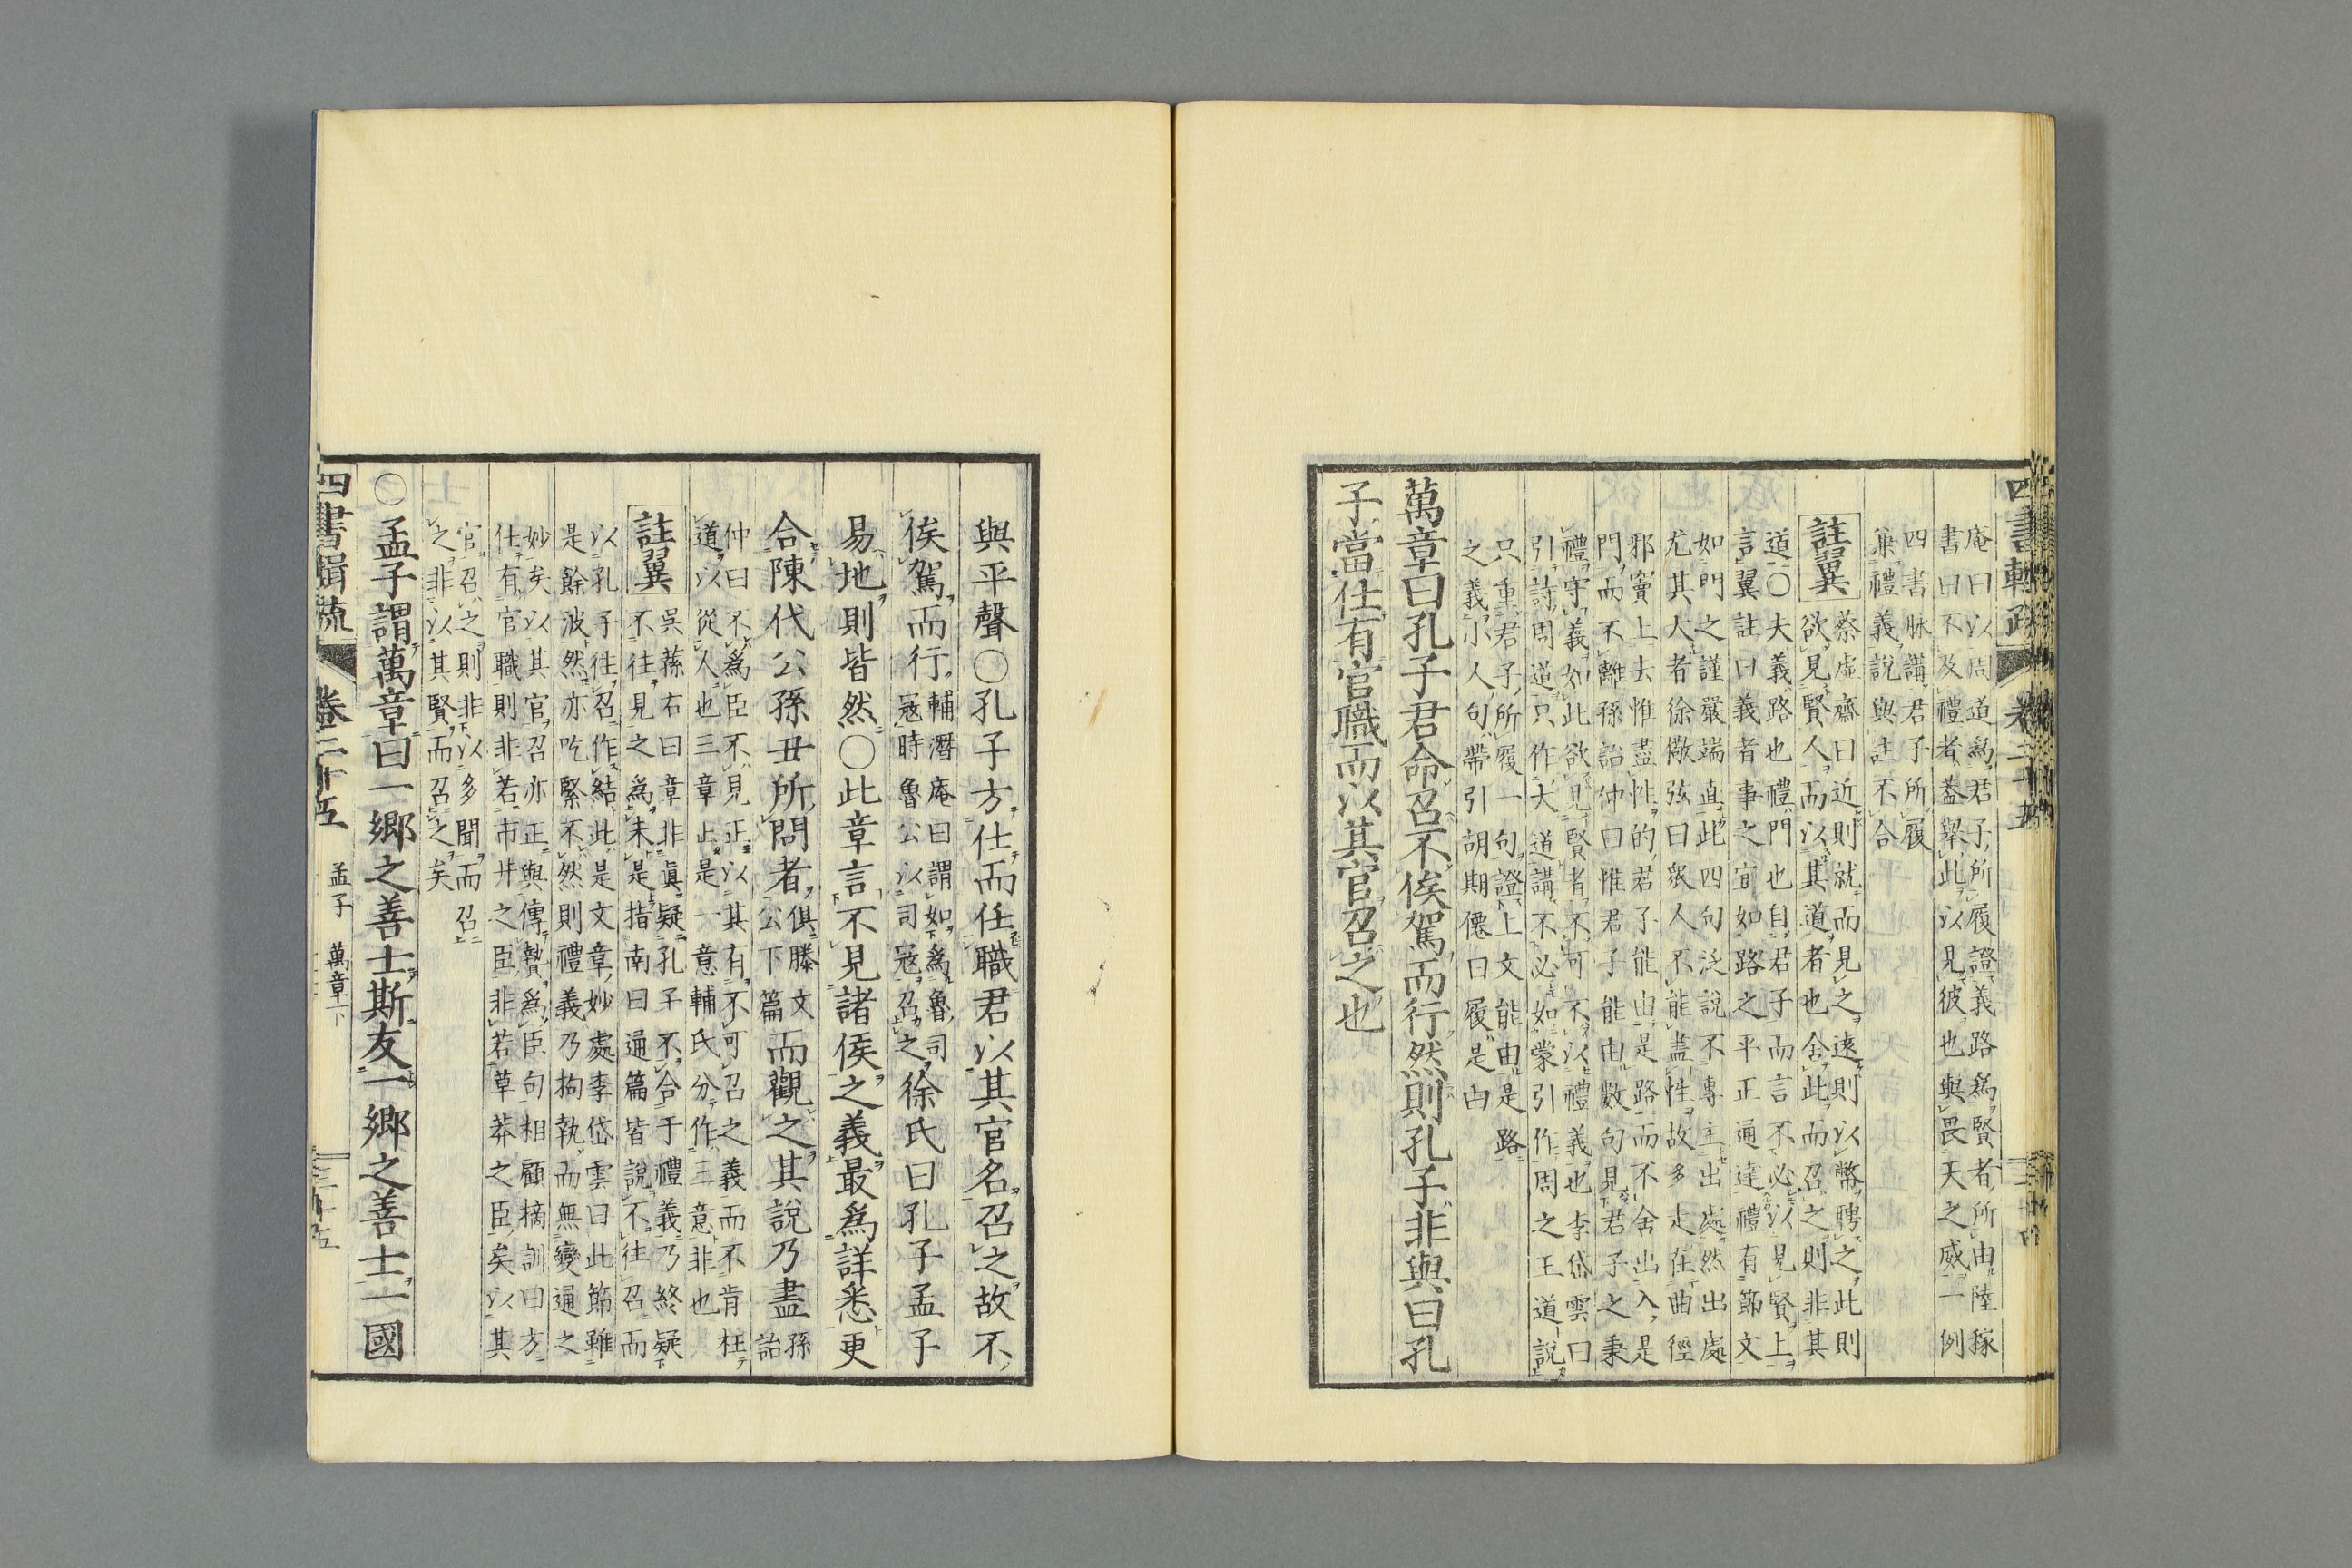 四書輯疏 卷二十五 三十四
庵曰以周道為君子所履證義路為賢者所由陸稼
書曰不及禮者蓋舉此以見彼也與畏天之威一例
四書脉講君子所履
兼禮義說與註不合
註翼
蔡虛齋曰近則就而見之遠則以幣聘之此則
欲見賢人而以其道者也舍此而召之則非其
道○大義路也禮門也自君子而言不必以見賢上
言翼註曰義者事之宜如路之平正通達禮有節文
如門之謹嚴端直此四句泛說不專主出處然出處
尤其大者徐儆弦曰眾人不能盡性故多走在曲徑
邪竇上去惟盡性的君子能由是路而不舍出入是
門而不離孫詒仲曰惟君子能由數句見君子之秉
禮守義如此欲見賢者不可不以禮義也李岱雲曰
引詩周道只作大道講不必如蒙引作周之王道說
只重君子所履一句證上文能由是路
之義小人句帶引胡期僊曰履是由
萬章曰孔子君命召不俟駕而行然則孔子非與曰孔
子當仕有官職而以其官召之也
與平聲○孔子方仕而任職君以其官名召之故不
俟駕而行
輔潛庵曰謂如為魯司
寇時魯公以司寇召之
徐氏曰孔子孟子
易地則皆然○此章言不見諸侯之義最為詳悉更
合陳代公孫丑所問者
俱滕文
公下篇
而觀之其說乃盡
孫
詒
仲曰不為臣不見正以其有不可召之義而不肯枉
道以從人也三章止是一意輔氏分作三意非也
註翼
吳蓀右曰章非真疑孔子不合于禮義乃終疑
不往見之為未是指南曰通篇皆說不往召而
以孔子往召作結此是文章妙處李岱雲曰此節雖
是餘波然亦吃緊不然則禮義乃拘執而無變通之
妙矣以其官召亦正與傳贄為臣句相顧摘訓曰方
仕有官職則非若市井之臣非若草莽之臣矣以其
官召之則非以多聞而召
之非以其賢而召之矣
○孟子謂萬章曰一鄉之善士斯友一鄉之善士一國
四書輯疏 卷二十五 孟子 萬章下 三十五